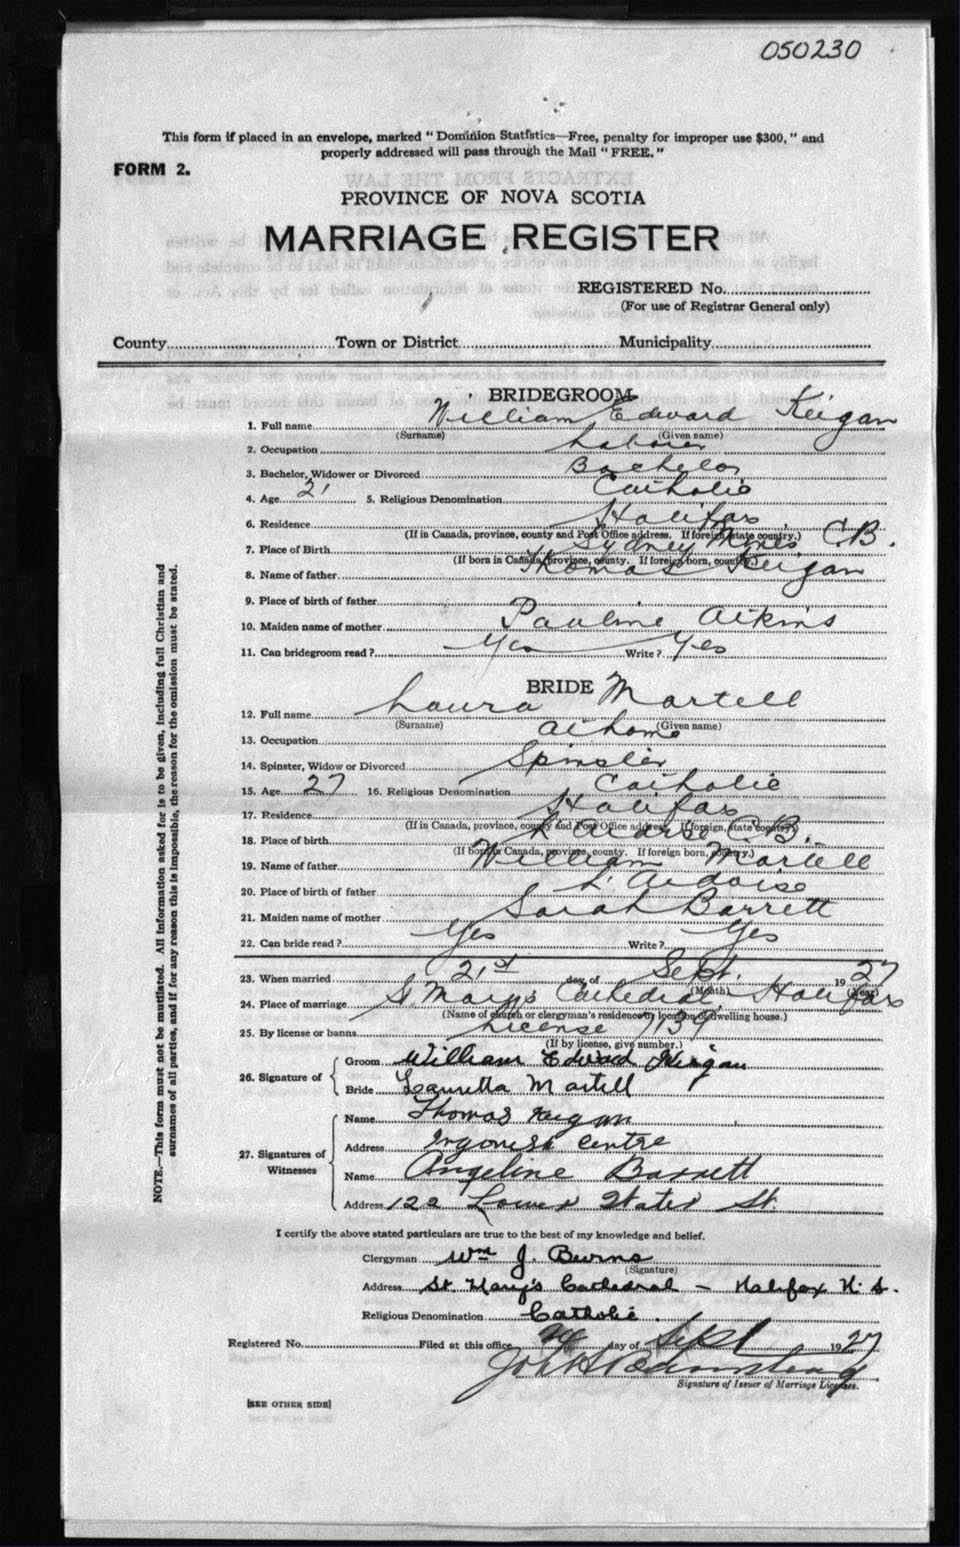 050230
This form if placed in an envelope, marked "Dominion Statistics—Free, penalty for improper use $300," and
properly addressed will pass through the Mail "FREE."
FORM 2.
PROVINCE OF NOVA SCOTIA
MARRIAGE REGISTER
REGISTERED No.
(For use of Registrar General only)
County Town or District Municipality
BRIDEGROOM
1. Full name William Edward Keigan
(Surname) (Given name)
2. Occupation Laborer
3. Bachelor, Widower or Divorced Bachelor
4. Age 21 5. Religious Denomination Catholic
6. Residence Halifax
(If in Canada, province, county and Post Office address. If foreign state country.)
7. Place of Birth Sydney Mines C.B.
(If born in Canada, province, county. If foreign born, country.)
8. Name of father Thomas Keigan
9. Place of birth of father
10. Maiden name of mother Pauline Atkins
11. Can bridegroom read? Yes Write? Yes
BRIDE
12. Full name Laura Martell
(Surname) (Given name)
13. Occupation at home
14. Spinster, Widow or Divorced Spinster
15. Age 27 16. Religious Denomination Catholic
17. Residence Halifax
(If in Canada, province, county and Post Office address. If foreign, state country)
18. Place of birth C.B.
(If born in Canada, province, county. If foreign born, country.)
19. Name of father William Martell
20. Place of birth of father L'Ardoise
21. Maiden name of mother Sarah Barrett
22. Can bride read? Yes Write? Yes
23. When married 21st day of Sept. 1927
(Month)
24. Place of marriage S. Mary's Cathedral, Halifax
(Name of church or clergyman's residence or location of dwelling house.)
25. By license or banns License 7139
(If by license, give number.)
26. Signature of
Groom William Edward Keigan
Bride Lauretta Martell
27. Signatures of Witnesses
Name Thomas Keigan
Address Ingonish Centre
Name Angeline Barrett
Address 122 Lower Water St.
I certify the above stated particulars are true to the best of my knowledge and belief.
Clergyman Wm J. Burns
(Signature)
Address St. Mary's Cathedral – Halifax N.S.
Religious Denomination Catholic
Registered No. Filed at this office day of Sept 1927
Signature of Issuer of Marriage Licenses.
[SEE OTHER SIDE]
NOTE.—This form must not be mutilated. All information asked for is to be given, including full Christian and
surnames of all parties, and if for any reason this is impossible, the reason for the omission must be stated.